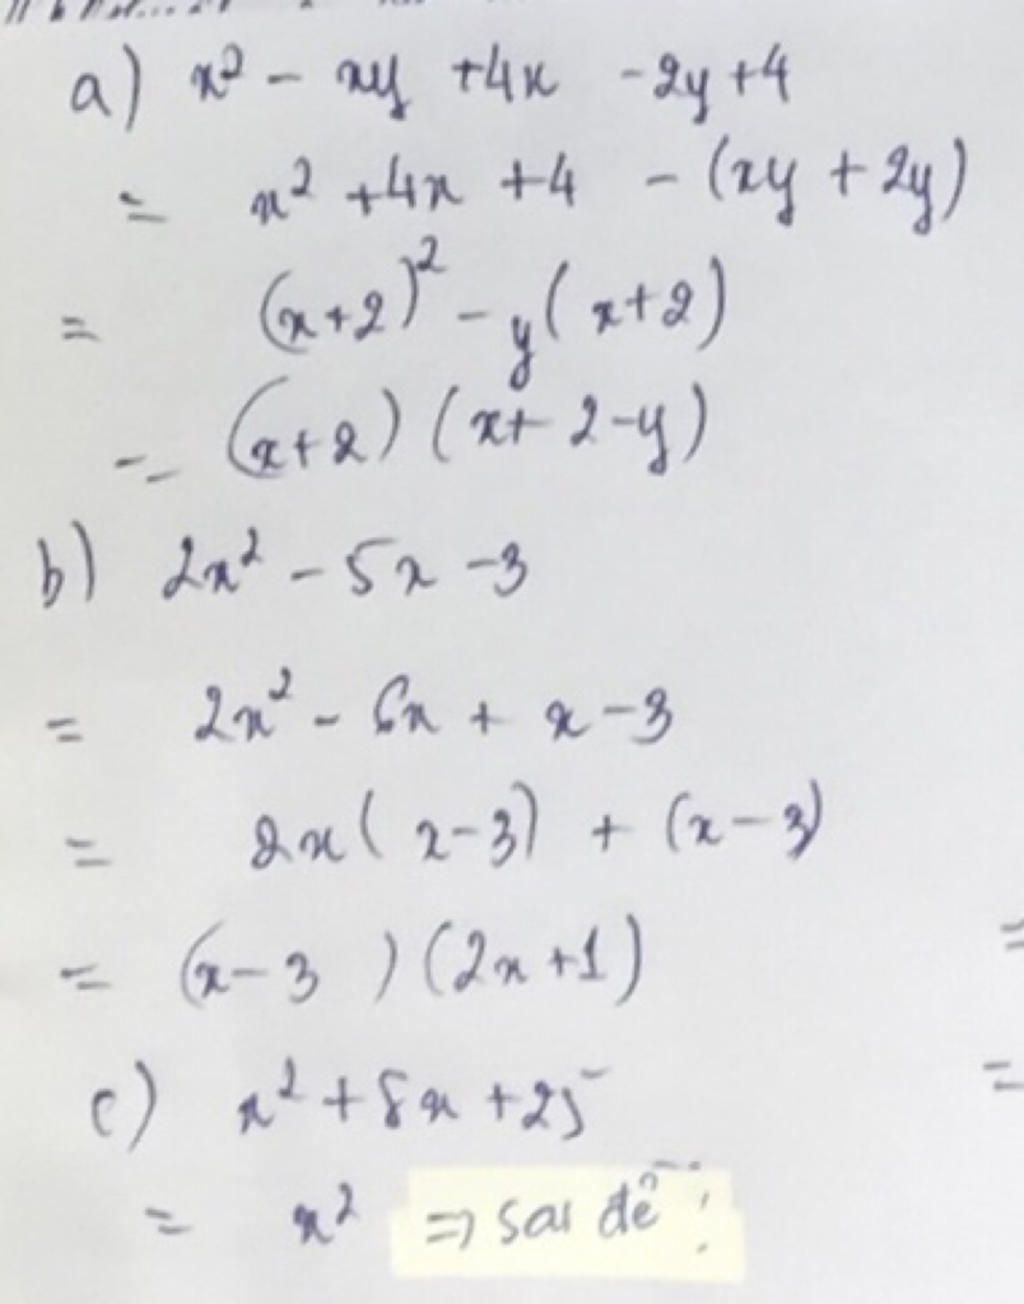 a) x² - xy + 4x - 2y + 4
= x² + 4x + 4 - (xy + 2y)
= (x+2)² - y(x+2)
= (x+2)(x+2-y)
b) 2x² - 5x - 3
= 2x² - 6x + x - 3
= 2x(x-3) + (x-3)
= (x-3)(2x+1)
=
c) x² + 8x + 25
=
= x² => sai đề !